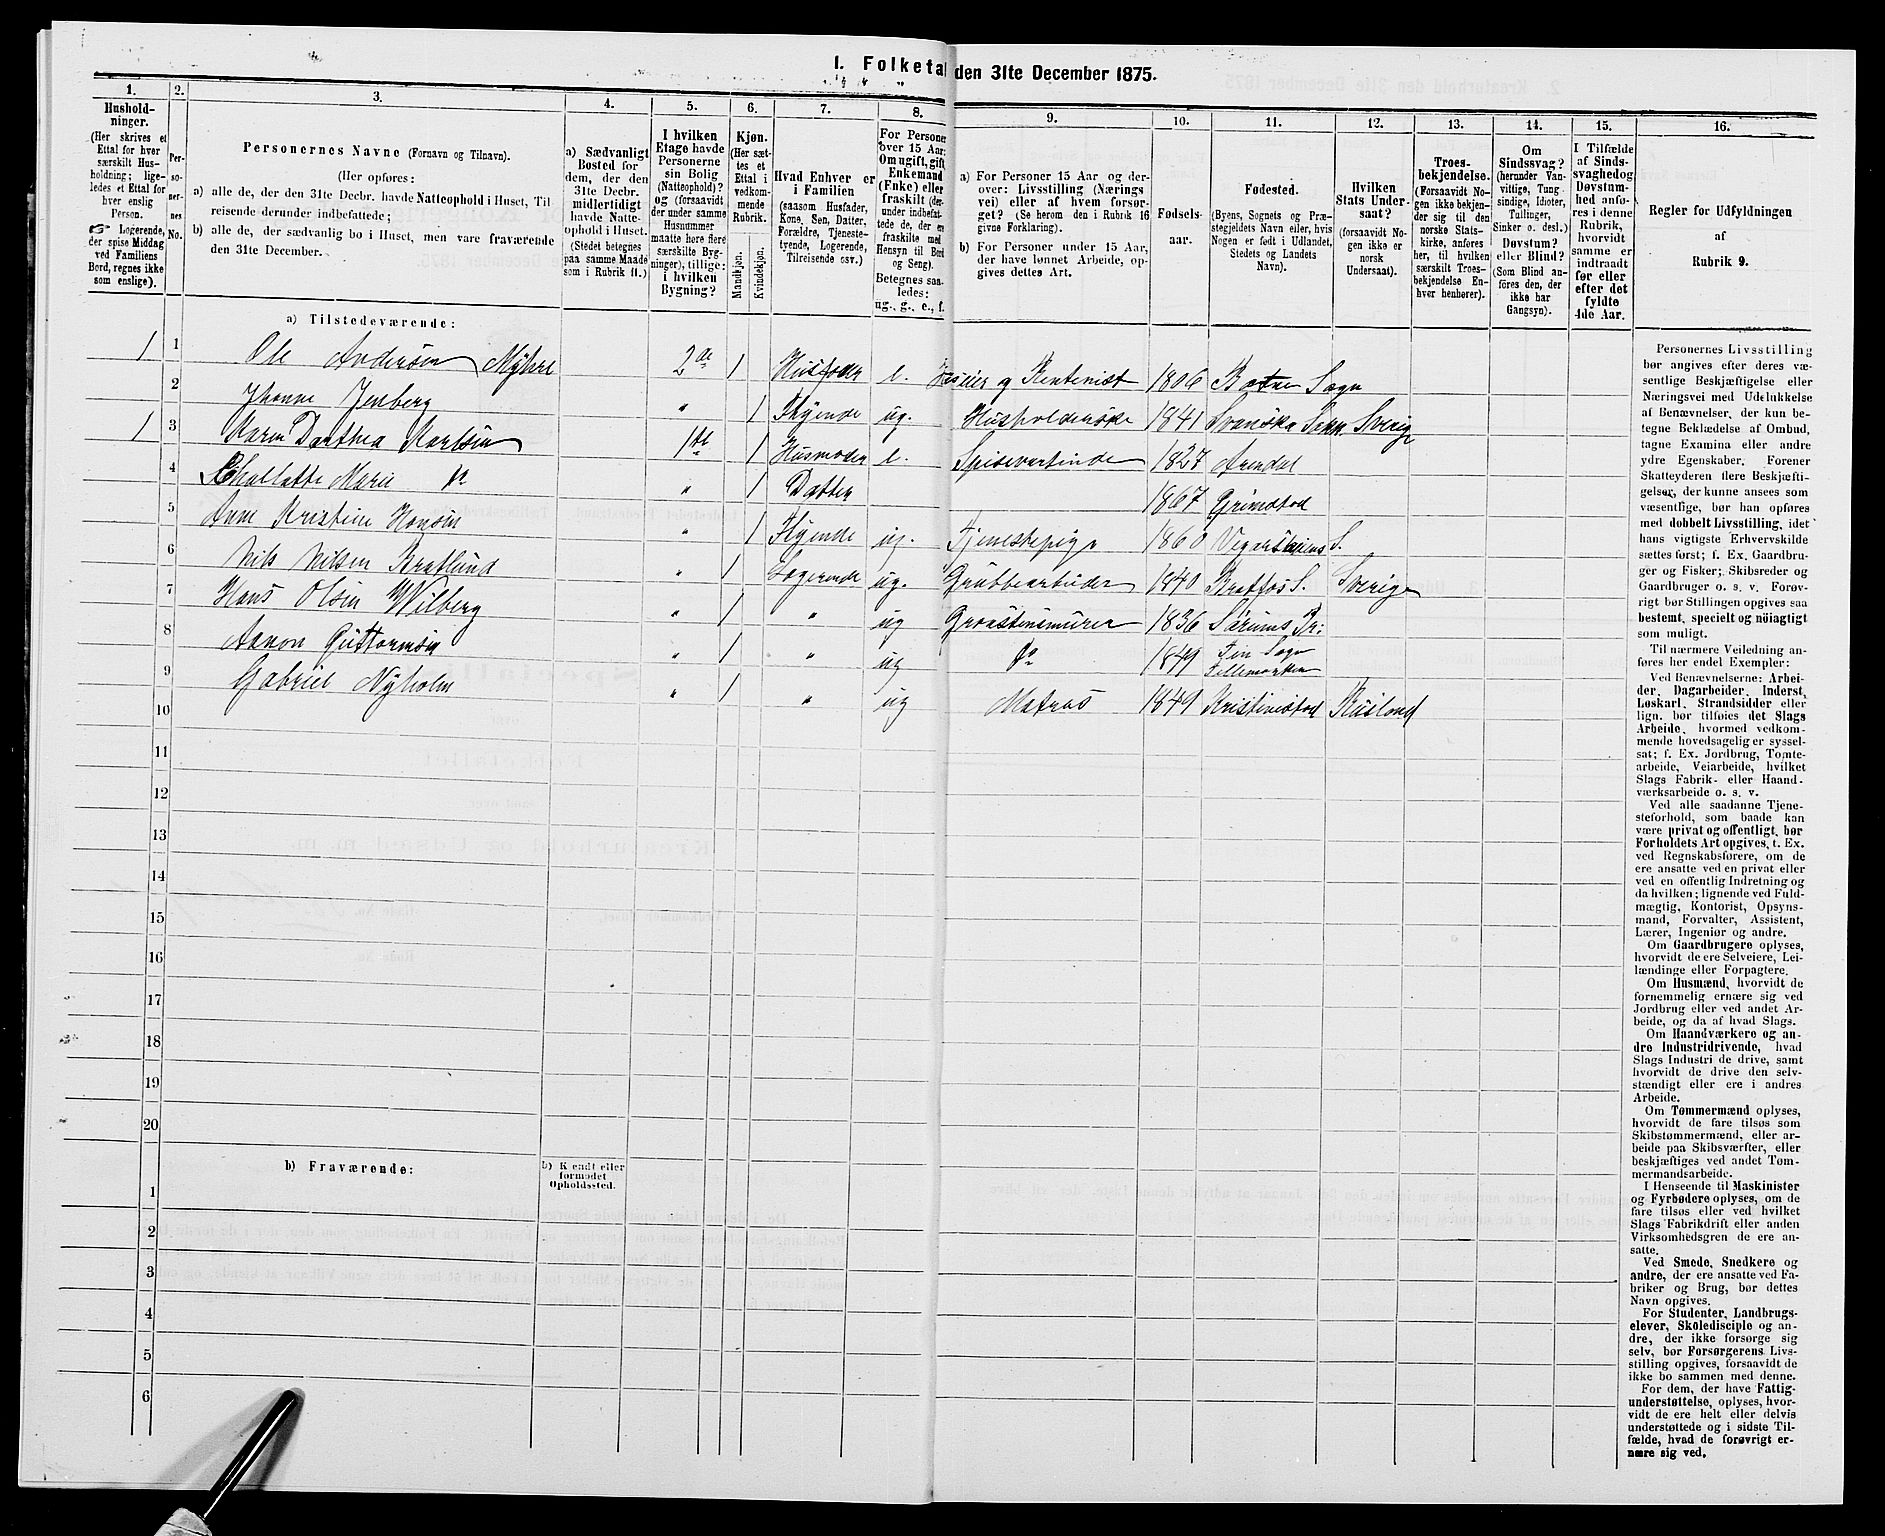 1. Folketal den 31te December 1875.
1. 2. 3. 4. 5. 6. 7. 8. 9. 10. 11. 12. 13. 14. 15. 16.
Hushold-
ninger.
(Her skrives et
Ettal for hver
særskilt Hus-
holdning; lige-
ledes et Ettal for
hver enslig
Person.
☞ Logerende,
der spise Middag
ved Familiens
Bord, regnes ikke
som enslige).
Per-
so-
ner-
nes
No.
Personernes Navne (Fornavn og Tilnavn).
(Her opføres:
a) alle de, der den 31te Decbr. havde Natteophold i Huset, Til-
reisende derunder indbefattede;
b) alle de, der sædvanlig bo i Huset, men vare fraværende
den 31te December.
a) Sædvanligt
Bosted for
dem, der den
31te Decbr.
midlertidigt
havde Natte-
ophold i Huset.
(Stedet betegnes
paa samme Maade
som i Rubrik 11.)
I hvilken
Etage havde
Personerne
sin Bolig
(Natteophold)?
og (forsaavidt
der under samme
Husnummer
maatte høre flere
særskilte Byg-
ninger), tillige:
i hvilken
Bygning?
Kjøn.
(Her sæt-
tes et
Ettal i
vedkom-
mende
Rubrik.
Mandkjøn.
Kvindekjøn.
Hvad Enhver er
i Familien
(saasom Husfader,
Kone, Søn, Datter,
Forældre, Tjeneste-
tyende, Logerende,
Tilreisende osv.)
For Personer
over 15 Aar:
Om ugift, gift
Enkemand
(Enke) eller
fraskilt (der-
under indbefat-
tede de, der ere
fraskilte med
Hensyn til Bord
og Seng).
Betegnes saa-
ledes:
ug., g., e., f.
a) For Personer 15 Aar og der-
over: Livsstilling (Nærings
vei) eller af hvem forsør-
get? (Se herom den i Rubrik 16
givne Forklaring).
b) For Personer under 15 Aar,
der have lønnet Arbeide, op-
gives dettes Art.
Fødsels-
aar.
Fødested.
(Byens, Sognets og Præ-
stegjeldets Navn eller, hvis
Nogen er født i Udlandet,
Stedets og Landets
Navn).
Hvilken
Stats Under-
saat?
(forsaavidt No-
gen ikke er
norsk
Undersaat).
Troes-
bekjendelse.
(Forsaavidt No-
gen ikke bekjen-
der sig til den
norske Stats-
kirke, anføres
her, til hvilken
særskilt Troes-
bekjendelse En-
hver henhører).
Om
Sindssvag?
(herunder Van-
vittige, Tung
sindige, Idioter,
Tullinger,
Sinker o. desl.)
Døvstum?
eller Blind?
(Som Blind an-
føres den, der
ikke har
Gangsyn).
I Tilfælde
af Sinds-
svaghed og
Døvstum-
hed anfø-
res i denne
Rubrik,
hvorvidt
samme er
indtraadt
før eller
efter det
fyldte
4de Aar.
Regler for Udfyldningen
af
Rubrik 9.
a) Tilstedeværende:
1 1 Ole Andersen Myhre 2de 1 Husfader e. Huseier og Rentenist 1806 Botne Sogn
2 Jhanne Jenberg " 1 Thyende ug. Husholderske 1841 Svanska Sokn Sverige
1 3 Karen Dorthea Karlsen 1te 1 Husmoder e. Spiseværtinde 1827 Arendal
4 Challotte Marie Do " 1 Datter 1867 Grimstad
5 Ane Kristine Hansen 1 Thyende ug. Tjenestepige 1860 Vegarskiens S.
6 Nils Nilsen Bratlund " 1 Logerende ug. Grubbearbeider 1840 Bratfos S. Sverige
7 Hans Olsen Wilberg " 1 " ug Graastensmurer 1836 Sørums Pr:
8 Aanon Guttormsen " 1 " ug Do 1849 Tin Sogn Tellemarken
9 Gabriel Nyholm " 1 " ug Matros 1849 Kristinestad Rusland
10
11
12
13
14
15
16
17
18
19
20
b) Fraværende:
b) Kjendt eller
formodet
Opholdssted.
1
2
3
4
5
6
Personernes Livsstilling
bør angives efter deres væ-
sentlige Beskjæftigelse eller
Næringsvei med Udelukkelse
af Benævnelser, der kun be-
tegne Beklædelse af Ombud,
tagne Examina eller andre
ydre Egenskaber. Forener
Skatteyderen flere Beskjæfti-
gelser, der kunne ansees som
væsentlige, bør han opføres
med dobbelt Livsstilling, idet
hans vigtigste Erhvervskilde
sættes først; f. Ex. Gaardbru-
ger og Fisker; Skibsreder og
Gaardbruger o. s. v. Forøv-
rigt bør Stillingen opgives saa
bestemt, specielt og nöiagtigt
som muligt.
Til nærmere Veiledning an-
føres her endel Exempler:
Ved Benævnelserne: Arbei-
der, Dagarbeider, Inderst,
Løskarl, Strandsidder eller
lign. bør tilføies det Slags
Arbeide, hvormed vedkom-
mende hovedsagelig er syssel-
sat; f. Ex. Jordbrug, Tomte-
arbeide, Veiarbeide, hvilket
Slags Fabrik- eller Haand-
værksarbeide o. s. v.
Ved alle saadanne Tjene-
steforhold, som baade kan
være privat og offentligt, bør
Forholdets Art opgives, t. Ex.
ved Regnskabsførere, om de
ere ansatte ved en privat eller
ved en offentlig Indretning og
da hvilken; lignende ved Fuld-
mægtig, Kontorist, Opsyns-
mand, Forvalter, Assistent,
Lærer, Ingeniør og andre.
Om Gaardbrugere oplyses,
hvorvidt de ere Selveiere, Lei-
lændinge eller Forpagtere.
Om Husmænd, hvorvidt de
fornemmelig ernære sig ved
Jordbrug eller ved andet Ar-
beide, og da af hvad Slags.
Om Haandværkere og an-
dre Industridrivende, hvad
Slags Industri de drive, samt
hvorvidt de drive den selv-
stændigt eller ere i andres
Arbeide.
Om Tømmermænd oplyses,
hvorvidt de fare tilsøs som
Skibstømmermænd, eller ar-
beide paa Skibsværfter, eller
beskjæftiges ved andet Tøm-
mermandsarbeide.
I Henseende til Maskinister
og Fyrbødere oplyses, om de
fare tilsøs eller ved hvilket
Slags Fabrikdrift eller anden
Virksomhedsgren de ere an-
satte.
Ved Smede, Snedkere og
andre, der ere ansatte ved Fa-
briker og Brug, bør dettes
Navn opgives.
For Studenter, Landbrugs-
elever, Skoledisciple og an-
dre, der ikke forsørge sig
selv, bør Forsørgerens Livs-
stilling opgives, forsaavidt de
ikke bo sammen med denne.
For dem, der have Fattig-
understøttelse, oplyses, hvor-
vidt de ere helt eller delvis
understøttede og i sidste Til-
fælde, hvad de forøvrigt er-
nære sig ved.